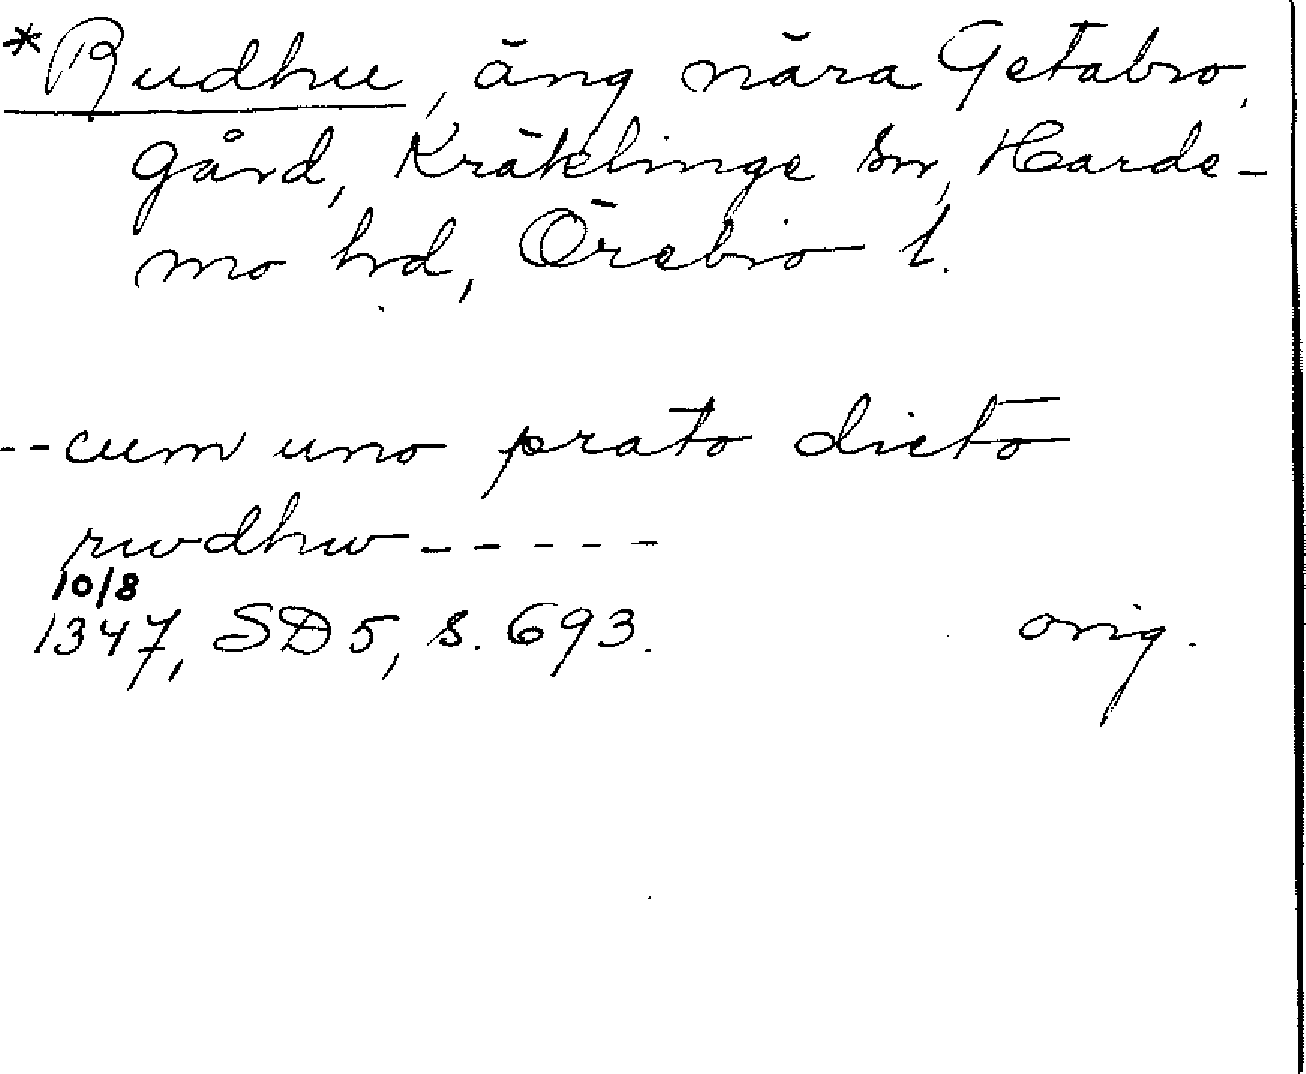 *Rudhu, äng nära Getabro,
gård, Kräklinge sn, Harde-
mo hrd, Örebro l.
--cum uno prato dicto
rwdhw-----
10/8
1347, SD5, s. 693. orig.